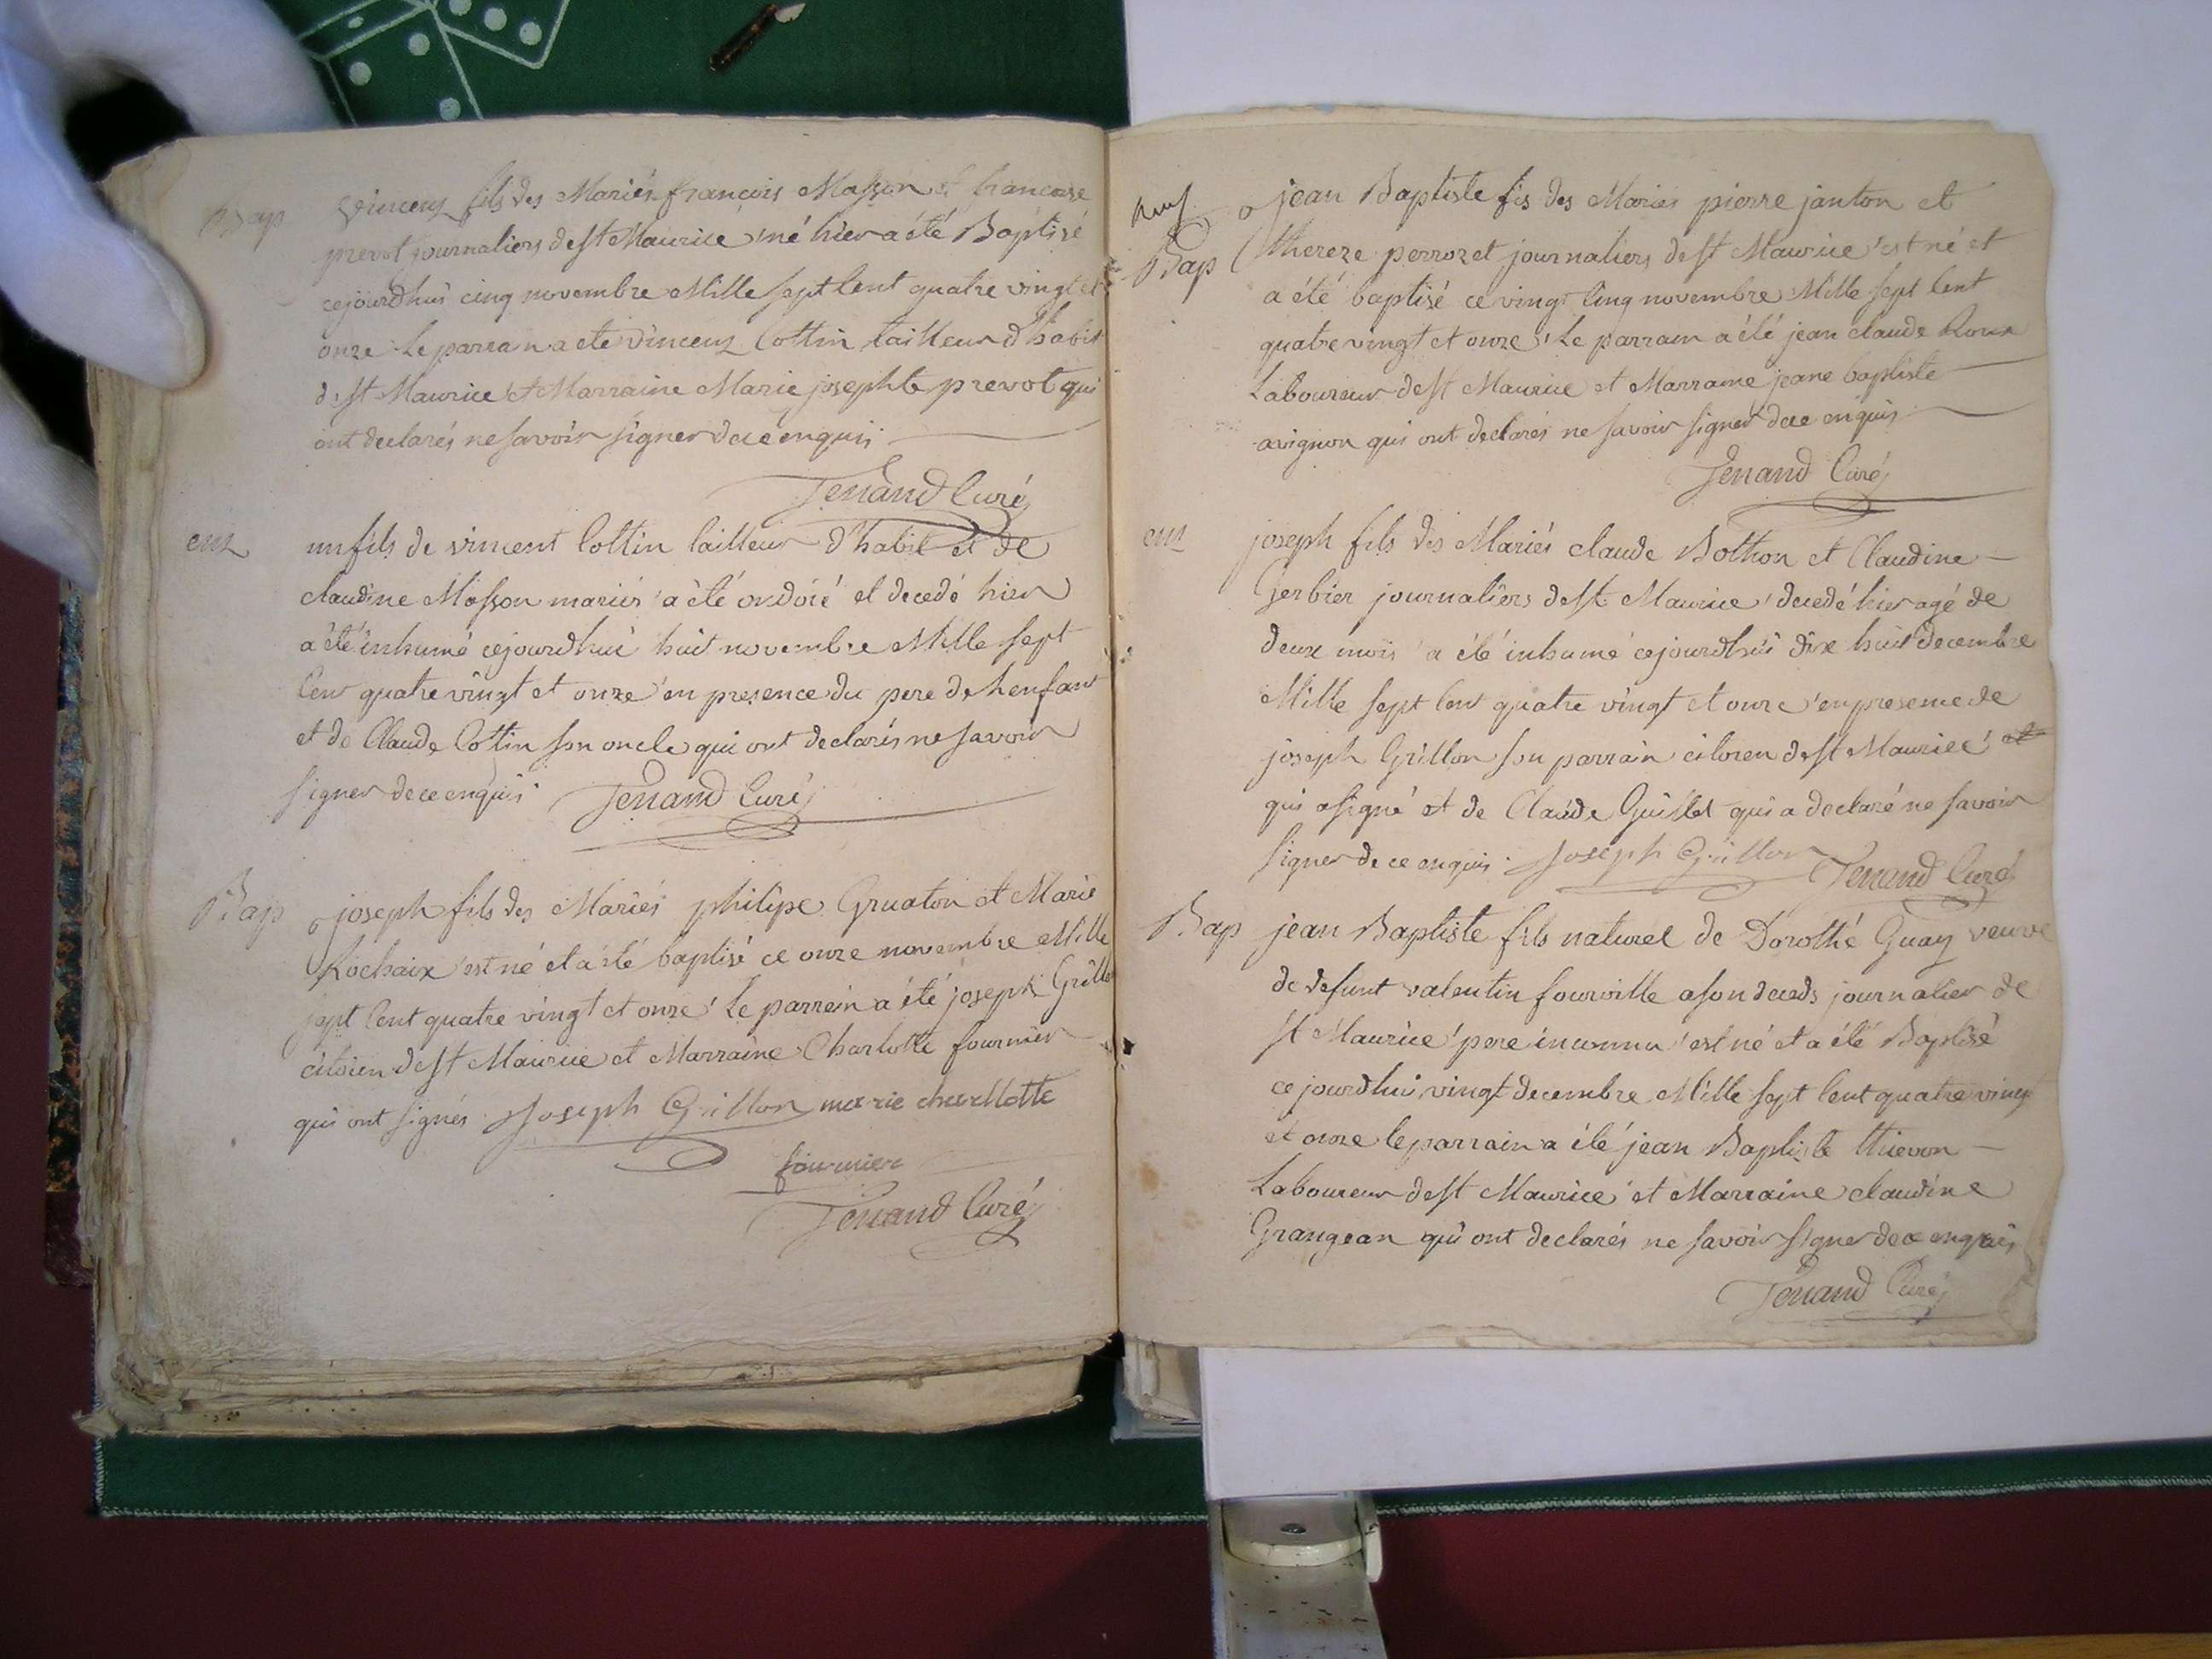 Bap
Vincenz fils des Mariés françois Masson et francoise
prevot journaliers de st Maurice né hier a été Baptisé
cejourdhui cinq novembre Mille sept Cent quatre vingt et
onze Le parran a ete vincenz Cottin tailleur d'habit
de st Maurice et Marraine Marie josephte prevot qui
ont declarés ne savoir signer de ce enquis
Tenand Curé
un fils de vincent Cottin tailleur d'habit et de
claudine Masson mariés a été ondoié et decedé hier
a été inhumé cejourdhui huit novembre Mille sept
Cent quatre vingt et onze en presence du pere de lenfant
et de Claude Cottin son oncle qui ont declarés ne savoir
signer de ce enquis Tenand Curé
Bap
joseph fils des Mariés philipe Gruaton et Marie
Rochaix est né et a été baptisé ce onze novembre Mille
sept Cent quatre vingt et onze Le parrein a été joseph Grillo
citoien de st Maurice et Marraine Charlotte fournier
qui ont signés Joseph Grillon marie charllotte
fournier
Tenand Curé
jean Baptiste fis des Mariés pierre janton et
Bap
thereze perrozet journaliers de st Maurice est né et
a été baptisé ce vingt Cinq novembre Mille sept Cent
quatre vingt et onze Le parrain a été jean claude Roux
Laboureur de st Maurice et Marraine jeane baptiste
avignon qui ont declarés ne savoir signer de ce enquis
Tenand Curé
joseph fils des Mariés claude Bothon et Claudine
Gerbier journaliers de st Maurice decedé hier agé de
deux mois a été inhumé cejourdhui dix huit decembre
Mille sept Cent quatre vingt et onze en presence de
joseph Grillon son parrain citoien de st Maurice et
qui a signé et de Claude Guillet qui a declaré ne savoir
signer de ce enquis Joseph Grillon Tenand Curé
Bap
jean Baptiste fils naturel de Dorothé Guay veuve
de defunt valentin fourville a son deceds journalier de
st Maurice pere inconnu est né et a été Baptisé
ce jourdhui vingt decembre Mille sept Cent quatre vingt
et onze le parrain a été jean Baptiste thievon
Laboureur de st Maurice et Marraine claudine
Grangean qui ont declarés ne savoir signer de ce enquis
Tenand Curé